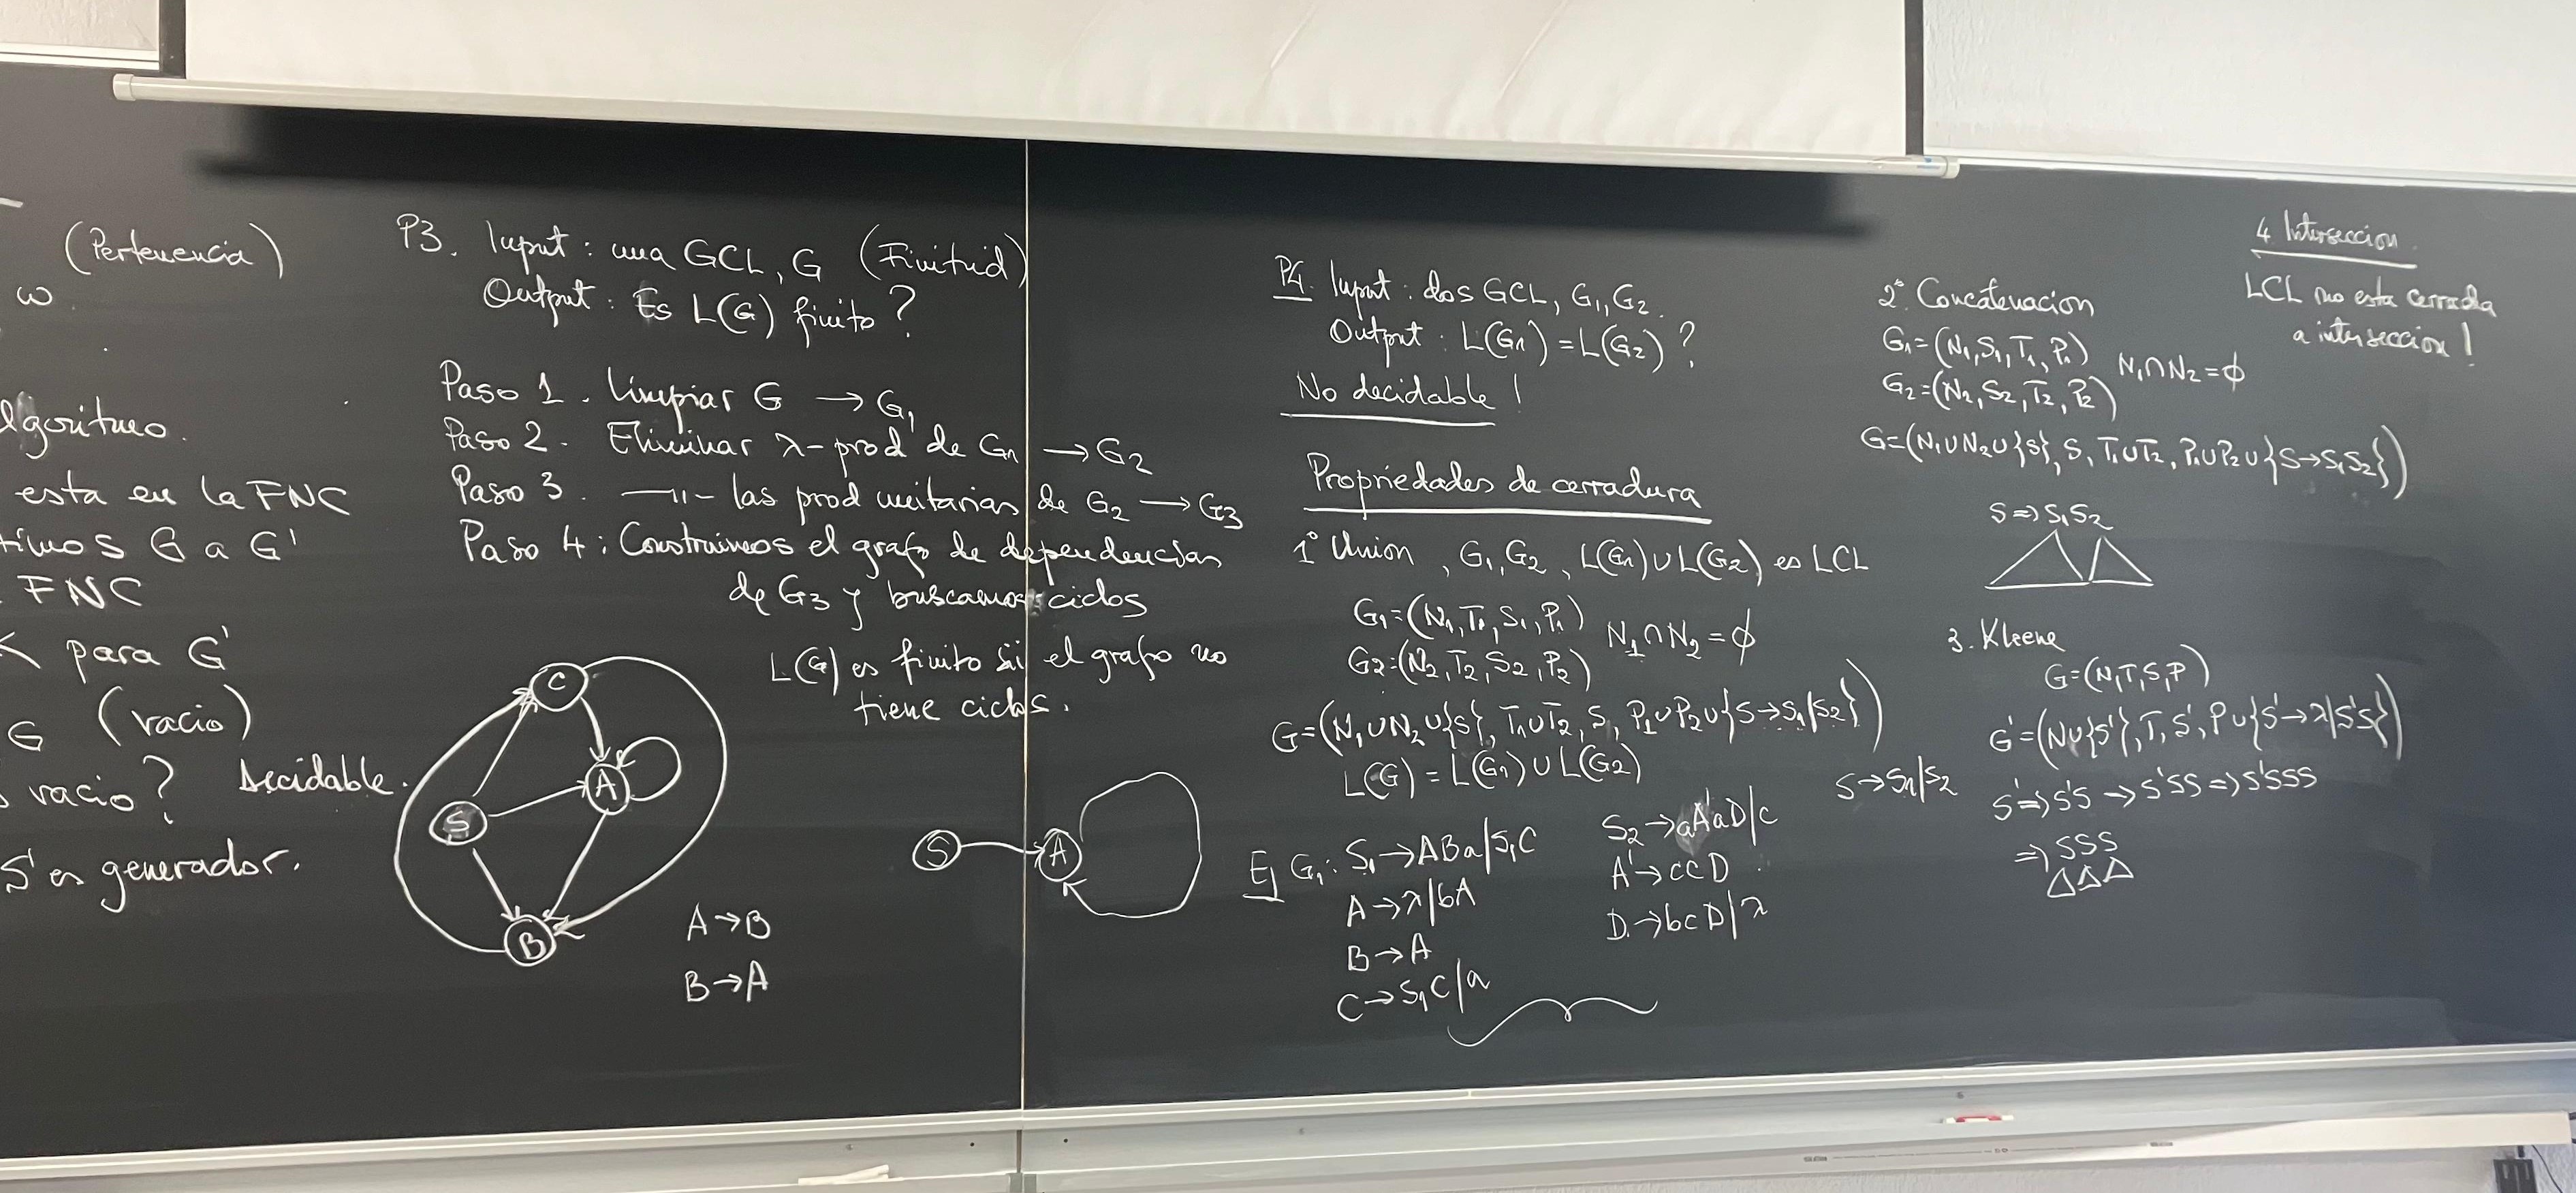 (Pertenencia)
w.
lgoritmo.
esta en la FNC
timos G a G'
FNC
K para G'
G (vacio)
vacio? Decidable.
S es generador.
P3. Input: una GCL, G (Finitud)
Output: Es L(G) finito?
Paso 1. Limpiar G → G1
Paso 2. Eliminar λ-prod de G1 → G2
Paso 3. —"— las prod unitarias de G2 → G3
Paso 4: Construimos el grafo de dependencias
de G3 y buscamos ciclos
L(G) es finito sii el grafo no
tiene ciclos.
C
A
S
B
A→B
B→A
S
A
P4. Input: dos GCL, G1, G2.
Output: L(G1) = L(G2)?
No decidable!
Propriedades de cerradura
1° Union, G1, G2, L(G1) ∪ L(G2) es LCL
G1=(N1, T1, S1, P1) N1∩N2=ϕ
G2=(N2, T2, S2, P2)
G=(N1∪N2∪{S}, T1∪T2, S, P1∪P2∪{S→S1|S2})
L(G) = L(G1) ∪ L(G2)
S→S1|S2
Ej G1: S1→ABa|S1C
A→λ|bA
B→A
C→S1C|a
S2→aA'aD|c
A'→ccD
D→bcD|λ
2° Concatenacion
G1=(N1, S1, T1, P1) N1∩N2=ϕ
G2=(N2, S2, T2, P2)
G=(N1∪N2∪{S}, S, T1∪T2, P1∪P2∪{S→S1S2})
S⇒S1S2
3. Kleene
G=(N,T,S,P)
G'=(N∪{S'}, T, S', P∪{S'→λ|S'S})
S'⇒S'S→S'SS⇒S'SSS
⇒SSS
4 Interseccion.
LCL no esta cerrada
a interseccion!